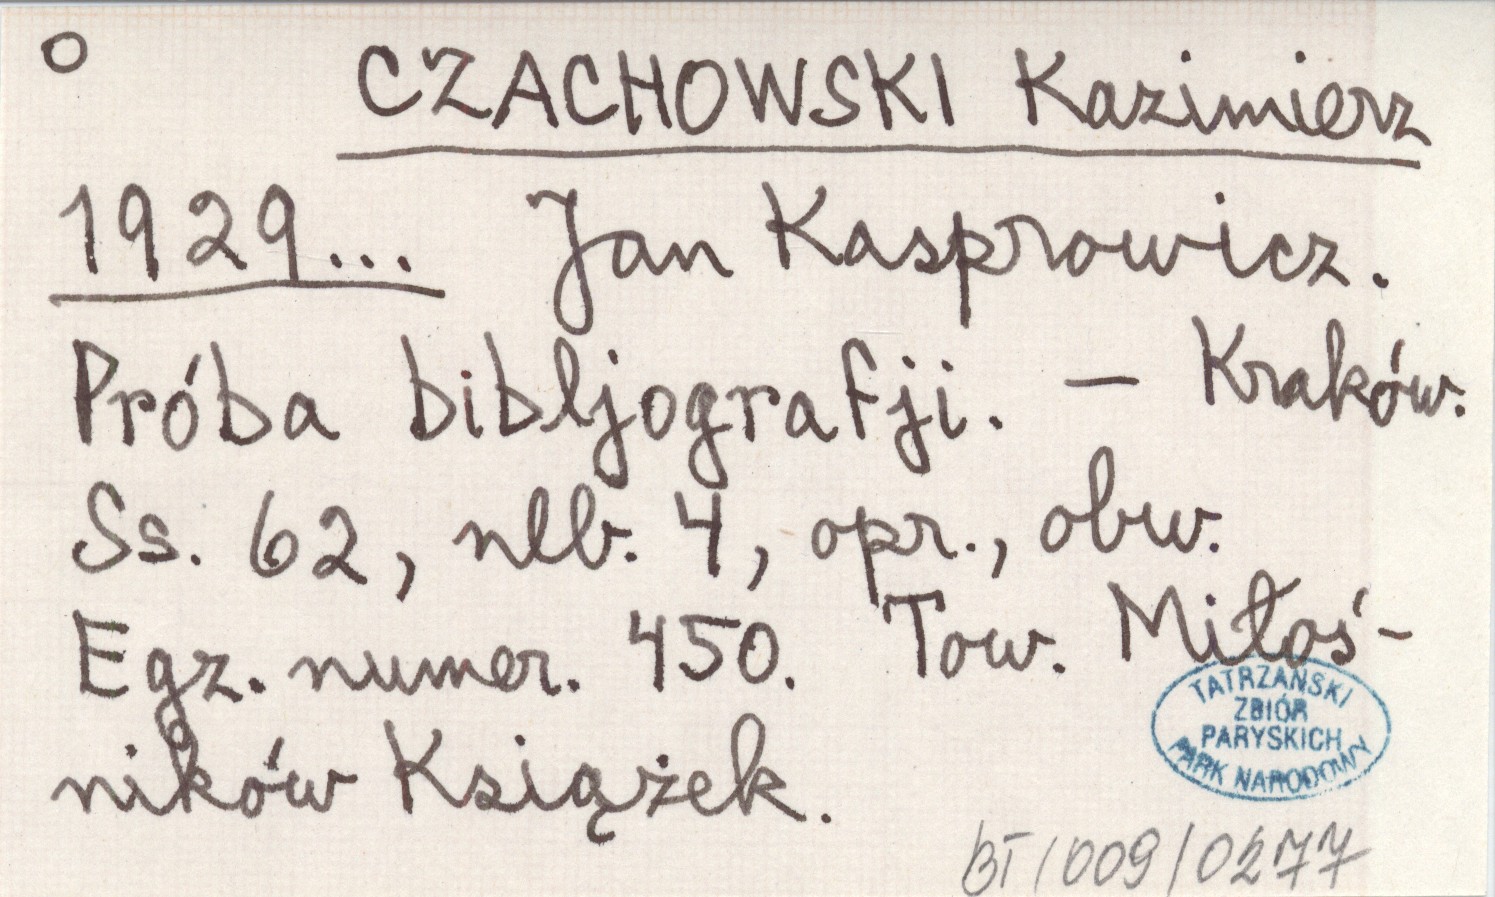 O CZACHOWSKI Kazimierz
1929... Jan Kasprowicz.
Próba bibljografji. — Kraków.
Ss. 62, nlb. 4, opr., obw.
Egz. numer. 450. Tow. Miłoś-
ników Książek.
TATRZAŃSKI
ZBIÓR
PARYSKICH
PARK NARODOWY
BT/009/0277